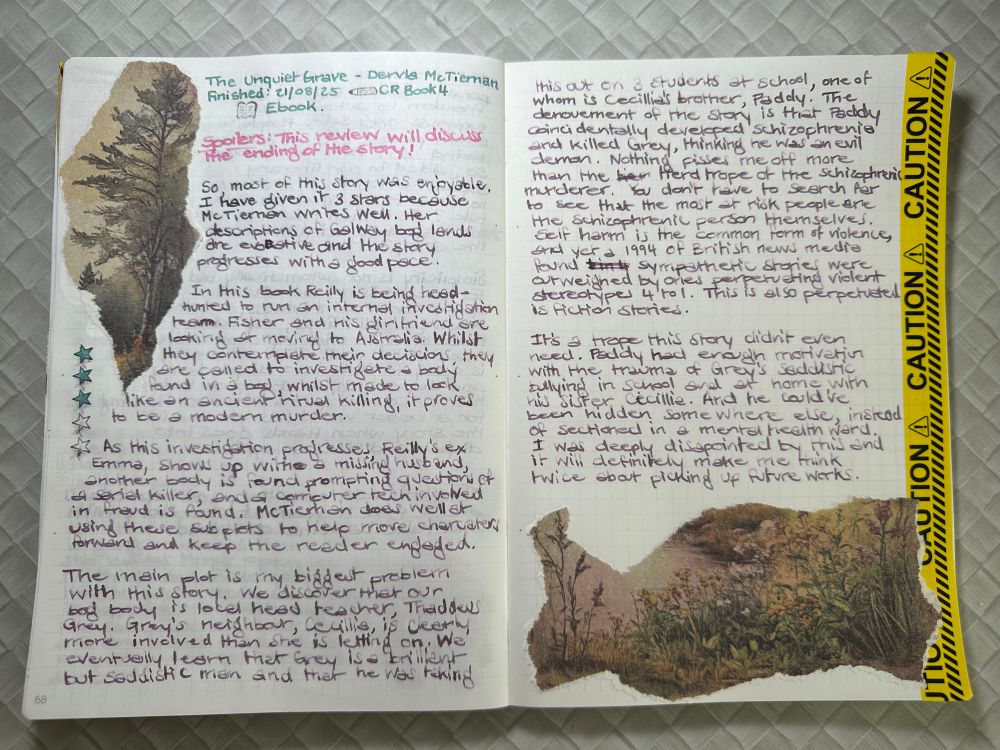 The Unquiet Grave - Dervla McTiernan
Finished: 21/08/25 CR Book 4
Ebook.
Spoilers: This review will discuss
the ending of the story!
So, most of this story was enjoyable.
I have given it 3 stars because
McTiernan writes well. Her
descriptions of Galway bog lands
are evocative and the story
progresses with a good pace.
In this book Reilly is being head-
hunted to run an internal investigation
team. Fisher and his girlfriend are
looking at moving to Australia. Whilst
they contemplate their decisions, they
are called to investigate a body
found in a bog, whilst made to look
like an ancient ritual killing, it proves
to be a modern murder.
As this investigation progresses, Reilly's ex
Emma, shows up with a missing husband,
another body is found prompting questions of
a serial killer, and a computer tech involved
in fraud is found. McTiernan does well at
using these subplots to help move characters
forward and keep the reader engaged.
The main plot is my biggest problem
with this story. We discover that our
bog body is local head teacher, Thaddeus
Grey. Grey's neighbour, Cecillia, is clearly
more involved than she is letting on. We
eventually learn that Grey is a brilliant
but saddistic man and that he was taking
68
this out on 3 students at school, one of
whom is Cecillia's brother, Paddy. The
denovement of the story is that Paddy
coincidentally developed schizophrenia
and killed Grey, thinking he was an evil
demon. Nothing pisses me off more
than the tierd trope of the schizophrenic
murderer. You don't have to search far
to see that the most at risk people are
the schizophrenic person themselves.
Self harm is the common form of violence,
and yet a 1994 of British news media
found sympathetic stories were
outweighed by ones perpetuating violent
stereotypes 4 to 1. This is also perpetuated
is fiction stories.
It's a trope this story didn't even
need. Paddy had enough motivation
with the trauma of Grey's saddistic
bullying in school and at home with
his sister Cecillia. And he could've
been hidden somewhere else, instead
of sectioned in a mental health ward.
I was deeply disapointed by this and
it will definitely make me think
twice about picking up future works.
CAUTION
CAUTION
CAUTION
CAUTION
UTION